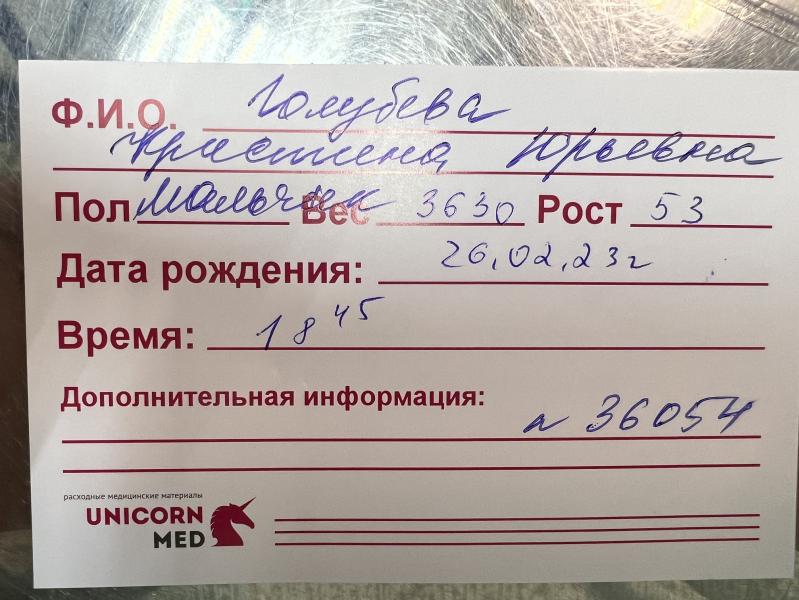 Ф.И.О. Голубева
Кристина Юрьевна
Пол Мальчик Вес 3630 Рост 53
Дата рождения: 26.02.23г
Время: 18 45
Дополнительная информация:
и 36054
расходные медицинские материалы
UNICORN
MED